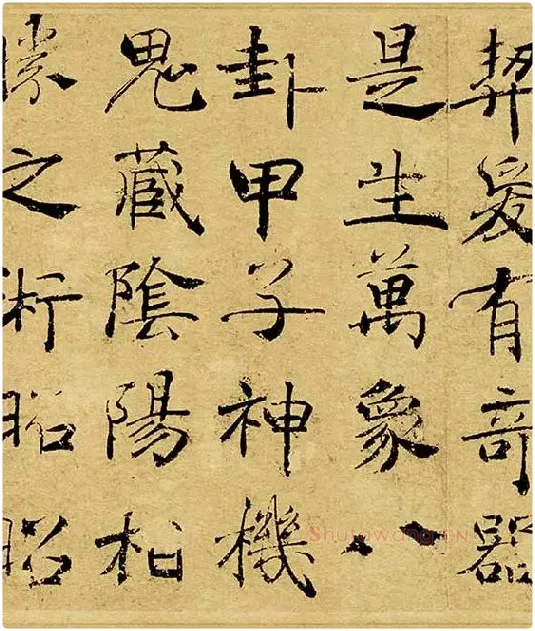 契爰有奇器
是生萬象八
卦甲子神機
鬼藏陰陽相
勝之術昭昭
Shufawang.CN